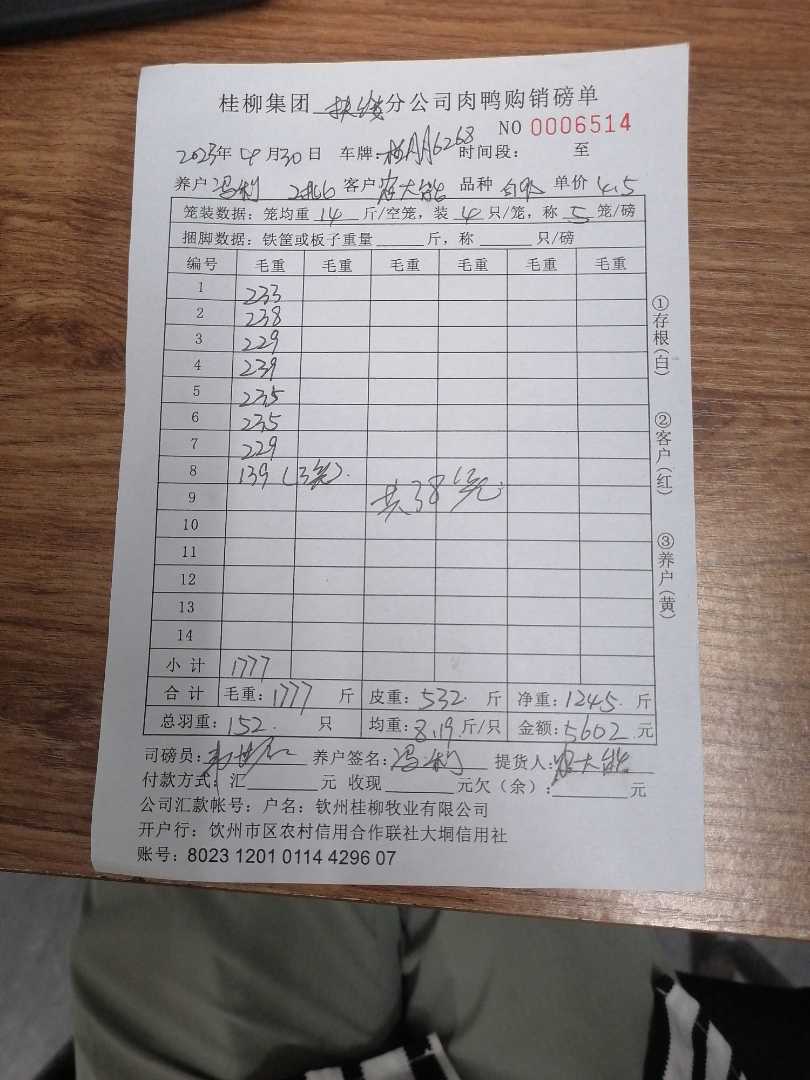 桂柳集团 扶绥 分公司肉鸭购销磅单
NO 0006514
2023年 09月30日 车牌: 6268 时间段: 至
养户 冯利 客户 农大能 品种 单价 4.5
笼装数据: 笼均重 14 斤/空笼, 装 4 只/笼, 称 5 笼/磅
捆脚数据: 铁筐或板子重量 斤, 称 只/磅
编号 毛重 毛重 毛重 毛重 毛重 毛重
1 233
2 238
3 229
4 239
5 235
6 235
7 229
8 139 (3笼).
9 共38笼.
10
11
12
13
14
小计 1777
合计 毛重: 1777 斤 皮重: 532. 斤 净重: 1245. 斤
总羽重: 152. 只 均重: 8.19 斤/只 金额: 5602. 元
司磅员: 养户签名: 冯利 提货人: 农大能
付款方式: 汇 元 收现 元欠(余): 元
公司汇款帐号: 户名: 钦州桂柳牧业有限公司
开户行: 钦州市区农村信用合作联社大垌信用社
账号: 8023 1201 0114 4296 07
①存根(白)
②客户(红)
③养户(黄)